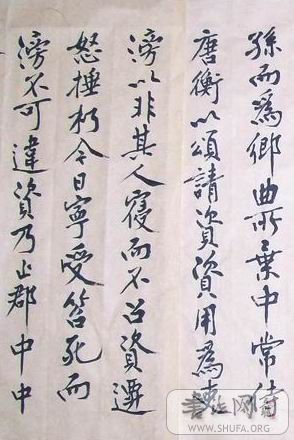 孫而為鄉曲所棄中常侍
唐衡以頌請資資用為吏
滂以非其人寢而不召資遷
怒捶朽今日寧受笞死而
滂不可違資乃止郡中中
WWW.SHUFA.ORG